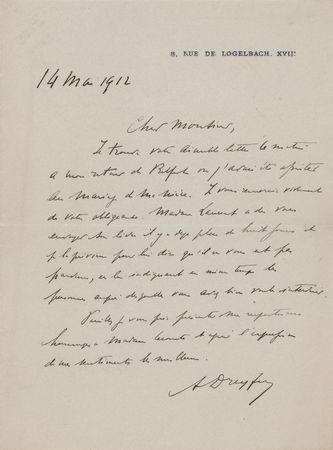 8, RUE DE LOGELBACH. XVIIᵉ
14 Mai 1912
Cher Monsieur,
Je trouve votre aimable lettre ce matin
à mon retour de Belfort où j'avais été assister
au mariage de ma nièce. Je vous remercie vivement
de votre obligeance. Madame Laurent a dû vous
envoyer son livre il y a déjà plus de huit jours et
je la préviens pour lui dire qu'il ne vous est pas
parvenu, en lui indiquant en même temps les
personnes auprès desquelles vous avez bien voulu
Veuillez, je vous prie, présenter mes respectueux
hommages à Madame et agréer l'expression
de mes sentiments les meilleurs.
A Dreyfus